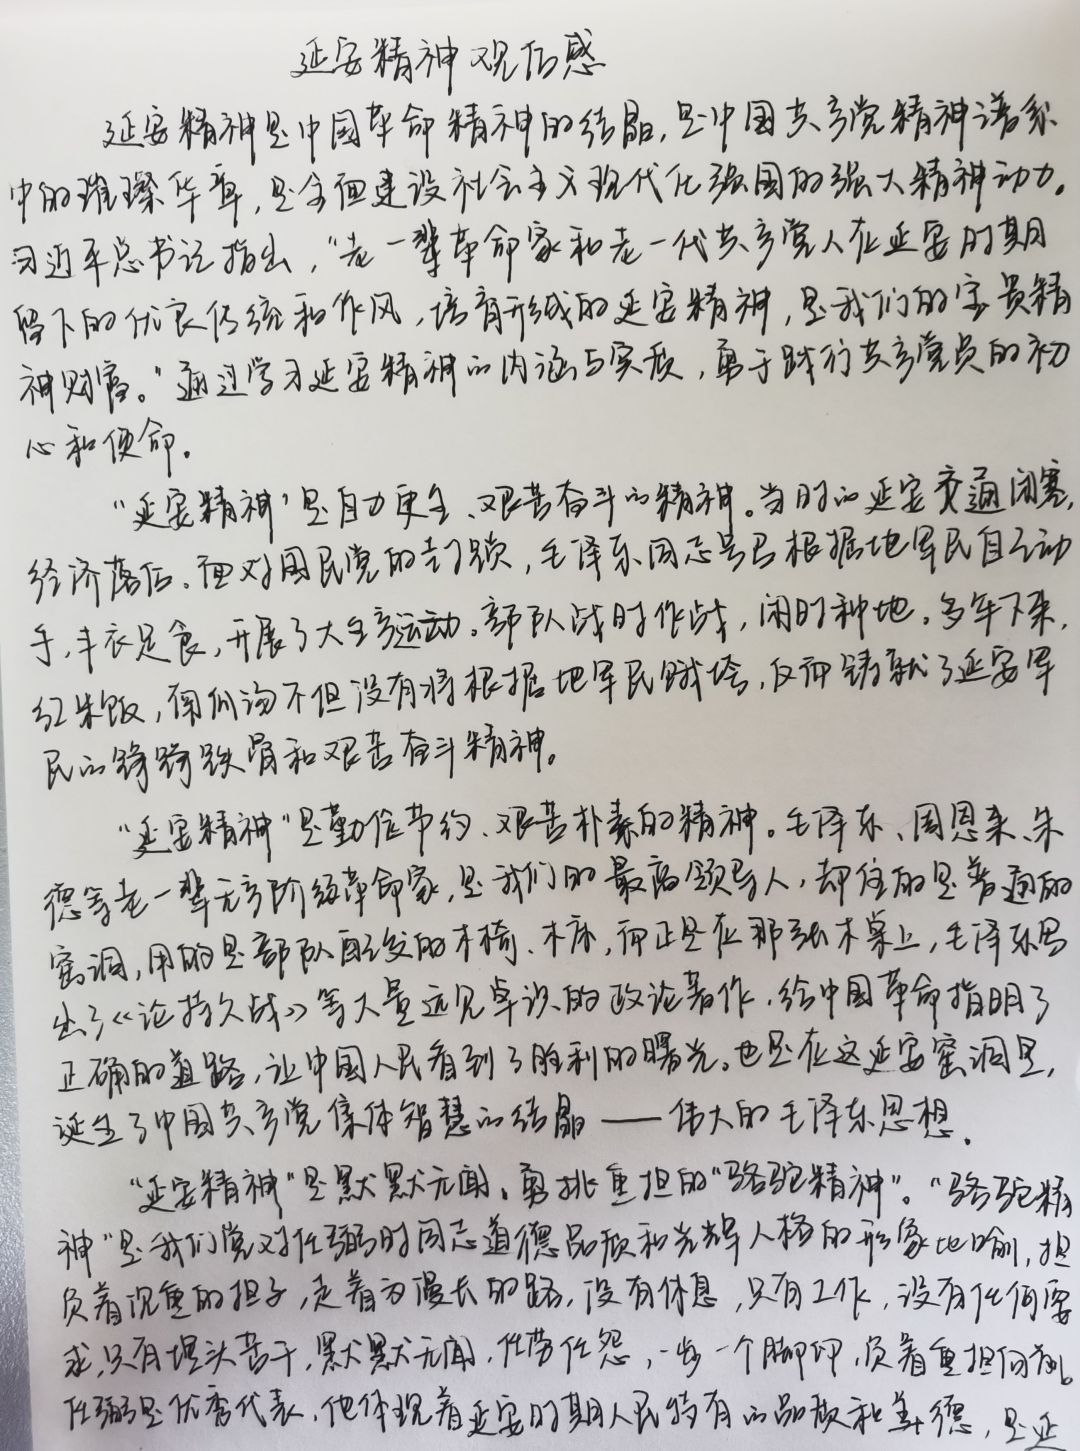 延安精神观后感
延安精神是中国革命精神的结晶,是中国共产党精神谱系
中的璀璨华章,是全面建设社会主义现代化强国的强大精神动力。
习近平总书记指出,“老一辈革命家和老一代共产党人在延安时期
留下的优良传统和作风,培育形成的延安精神,是我们的宝贵精
神财富。”通过学习延安精神的内涵与实质,勇于践行共产党员的初
心和使命。
“延安精神”是自力更生、艰苦奋斗的精神。当时的延安交通闭塞,
经济落后。面对国民党的封锁,毛泽东同志号召根据地军民自己动
手,丰衣足食,开展了大生产运动。部队战时作战,闲时种地。多年下来,
红米饭,南瓜汤不但没有将根据地军民饿垮,反而铸就了延安军
民的铮铮铁骨和艰苦奋斗精神。
“延安精神”是勤俭节约、艰苦朴素的精神。毛泽东、周恩来、朱
德等老一辈无产阶级革命家,是我们的最高领导人,却住的是普通的
窑洞,用的是部队配发的木椅、木床,而正是在那张木桌上,毛泽东写
出了《论持久战》等大量远见卓识的政论著作,给中国革命指明了
正确的道路,让中国人民看到了胜利的曙光。也是在这延安窑洞里,
诞生了中国共产党集体智慧的结晶——伟大的毛泽东思想。
“延安精神”是默默无闻、勇挑重担的“骆驼精神”。“骆驼精
神”是我们党对任弼时同志道德品质和光辉人格的形象比喻,担
负着沉重的担子,走着漫长的路,没有休息,只有工作,没有任何要
求,只有埋头苦干,默默无闻,任劳任怨,一步一个脚印,负着重担向前。
任弼是优秀代表,他体现着延安时期人民特有的品质和美德,是延